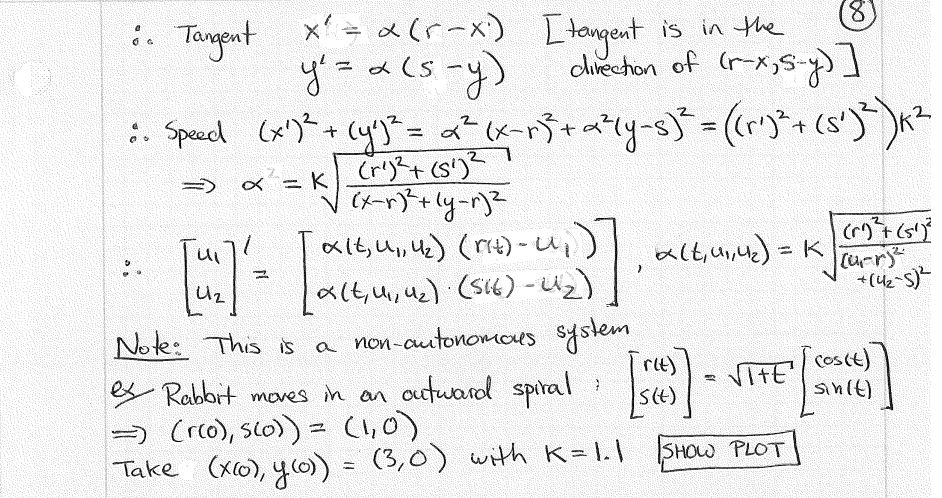 ⑧
∴ Tangent x' = α(r-x) [tangent is in the
y' = α(s-y) direction of (r-x, s-y)]
∴ Speed (x')² + (y')² = α²(x-r)² + α²(y-s)² = ((r')² + (s')²)K²
⇒ α² = K √((r')² + (s')² / (x-r)² + (y-r)²)
∴ [u₁ u₂]' = [α(t,u₁,u₂) (r(t) - u₁) α(t,u₁,u₂) · (s(t) - u₂)], α(t,u₁,u₂) = K √((r')² + (s')² / (u₁-r)² + (u₂-s)²)
Note: This is a non-autonomous system
ex Rabbit moves in an outward spiral : [r(t) s(t)] = √1+t [cos(t) sin(t)]
⇒ (r(0), s(0)) = (1,0)
Take (x(0), y(0)) = (3,0) with K=1.1 SHOW PLOT